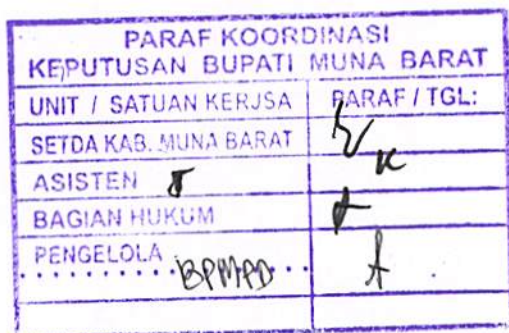 PARAF KOORDINASI
KEPUTUSAN BUPATI MUNA BARAT
UNIT / SATUAN KERJSA PARAF / TGL:
SETDA KAB. MUNA BARAT
ASISTEN
BAGIAN HUKUM
PENGELOLA
BPMPD